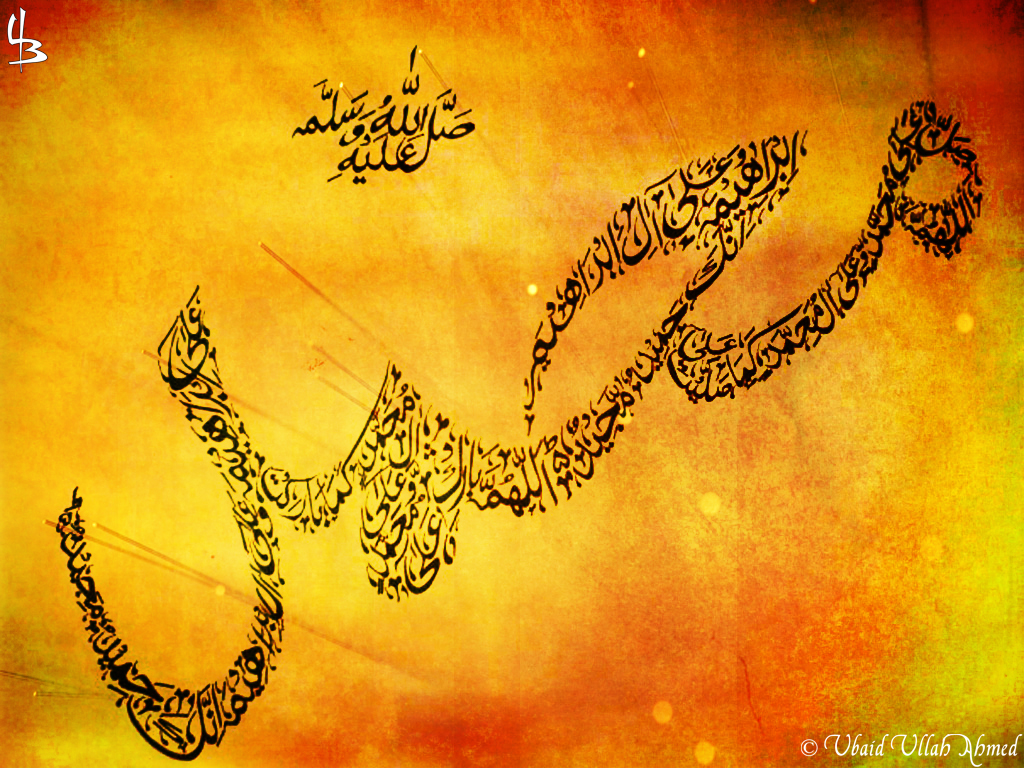 UB
صَلَّ اللّٰهُ عَلَيْهِ وَسَلَّمْ
اللهم صل على محمد وعلى ال محمد كما صليت على ابراهيم وعلى ال ابراهيم انك حميد مجيد
اللهم بارك على محمد وعلى ال محمد كما باركت على ابراهيم وعلى ال ابراهيم انك حميد مجيد
© Ubaid Ullah Ahmed